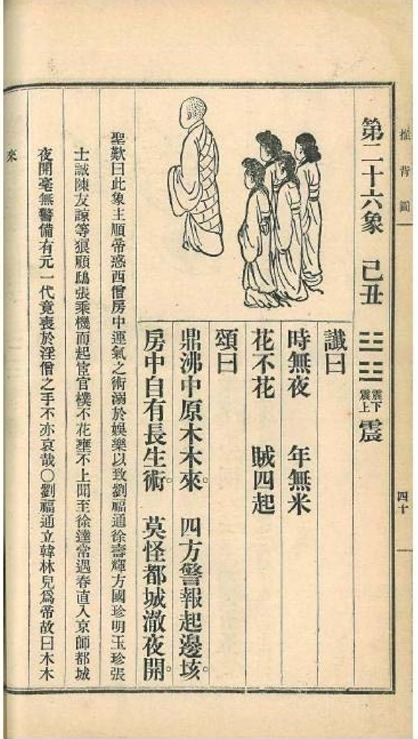 推背圖
四十
第二十六象 己丑 ☳☳ 震下震上 震
讖曰
時無夜 年無米
花不花 賊四起
頌曰
鼎沸中原木木來。四方警報起邊垓。
房中自有長生術。莫怪都城澈夜開。
聖歎曰此象主順帝惑西僧房中運氣之術溺於娛樂以致劉福通徐壽輝方國珍明玉珍張
士誠陳友諒等狼顧鴟張乘機而起宦官樸不花壅不上聞至徐達常遇春直入京師都城
夜開毫無警備有元一代竟喪於淫僧之手不亦哀哉〇劉福通立韓林兒爲帝故曰木木
來